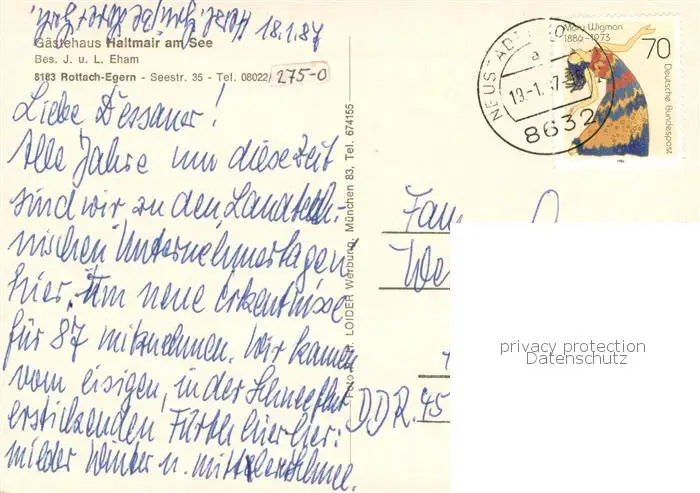 18.1.87
Gästehaus Haltmair am See
Bes. J. u. L. Eham
8183 Rottach-Egern - Seestr. 35 - Tel. 08022/275-0
Liebe Dessauer!
Alle Jahre um diese Zeit
sind wir zu den Landtech-
nischen Unternehmertagen
hier. Um neue Erkentnisse
für 87 mitnehmen. Wir kamen
vom eisigen, in der Schneeflut
erstickenden Fürth hierher:
milder Winter u. mittlerer Schnee.
Foto LOIDER Werbung, München 83, Tel. 674165
NEUSTADT
a
19-1.87
8632
Mary Wigman
1886-1973
70
Deutsche Bundespost
1986
Fam
We
DDR. 45
privacy protection
Datenschutz